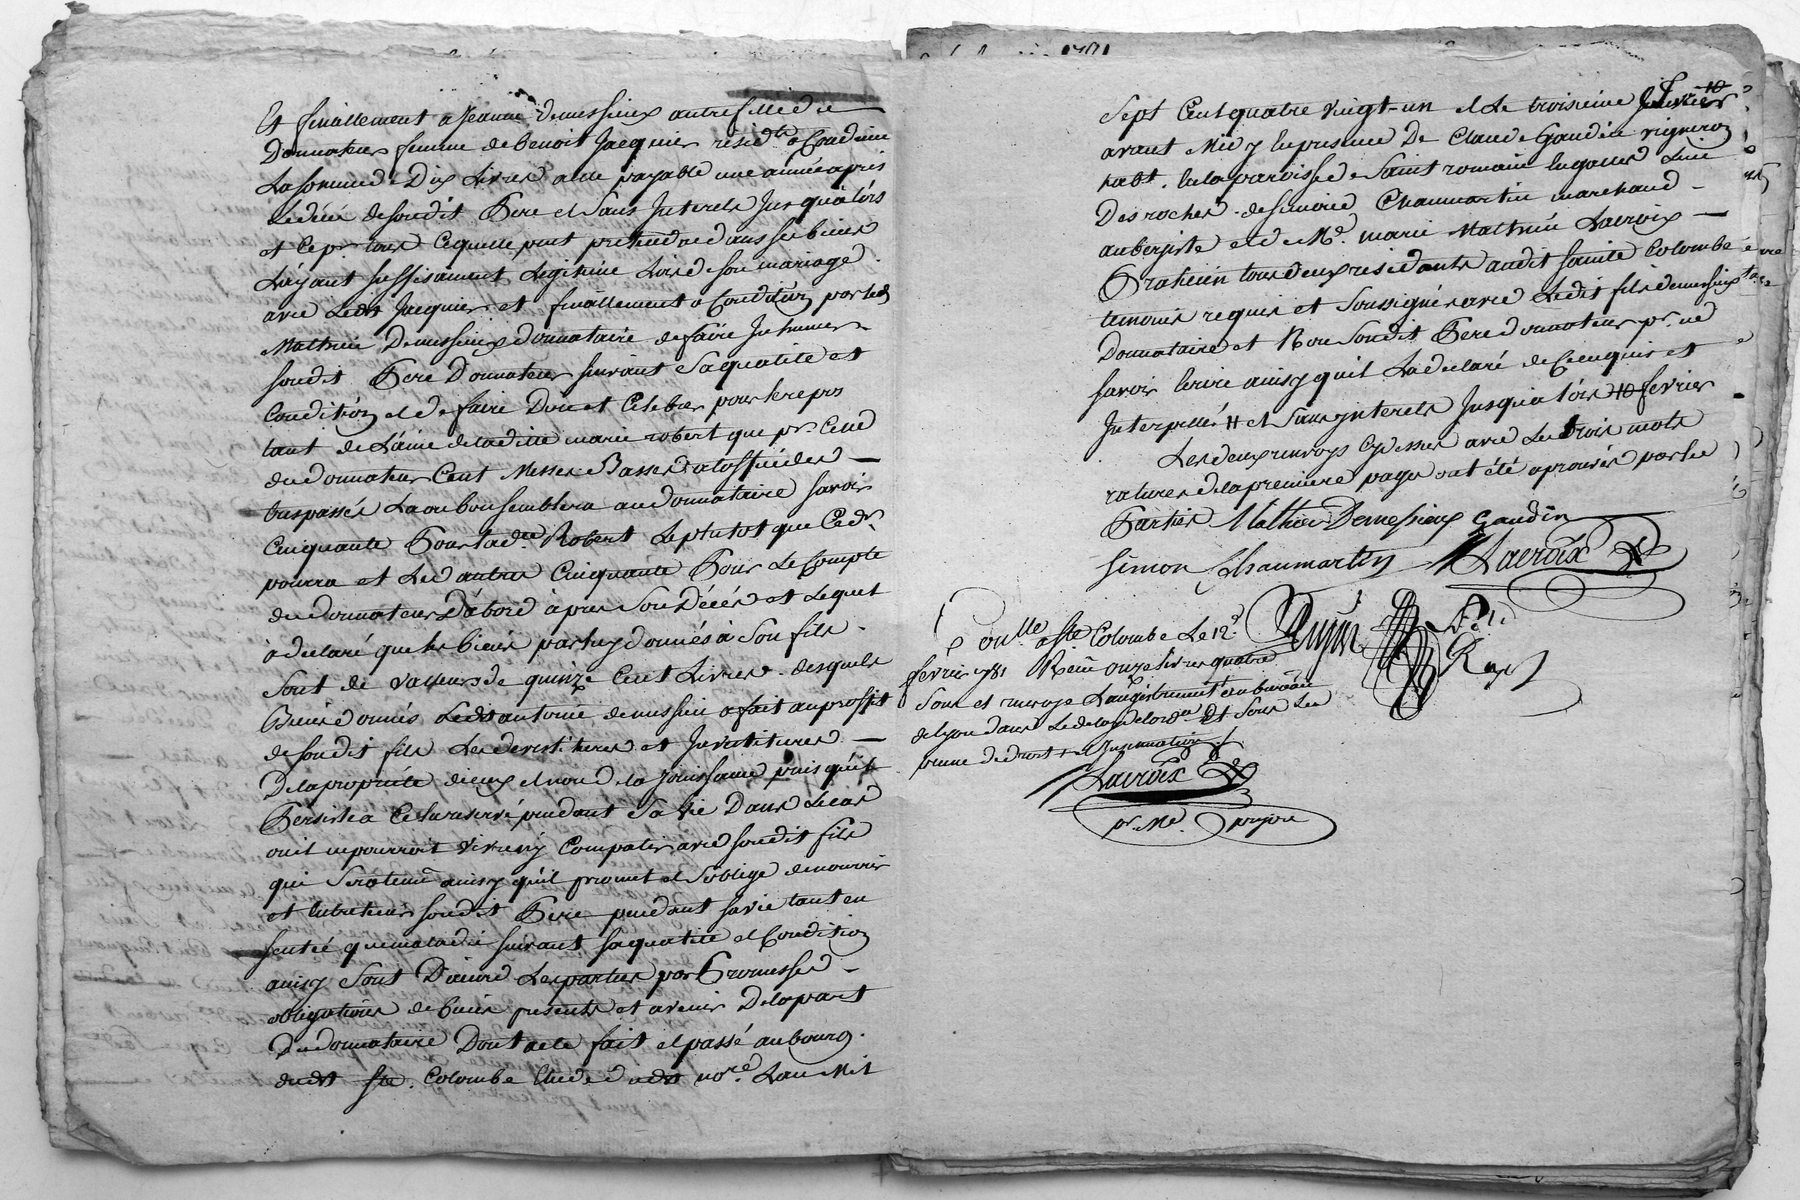 Et finallement a Jeanne Demessieux autre fille du
Donnateur femme de Benoit Jacquier residte a Condrieu
La somme de Dix Livres a elle payable une année apres
Le décés de son dit Pere et Sans Interets Jusqu'alórs
et ce pr. tous ce qu'elle peut pretendre dans ses biens
L'ayant suffisament Legitimée Lors de son mariage
avec Ledit Jacquier et finallement a Conditión par led.
Mathieu Demessieux donnataire de faire Inhumer
son dit Pere Donnateur suivant Sa qualité et
Conditión et de faire Dire et Celebrer pour le repos
tant de L'ame de la ditte marie robert que pr. Celle
du donnateur Cent Messes Basses a l'office des
trespassés La ou bon semblera au donnataire savoir
Cinquante Pour lade. Robert Le plutot que ledt.
pourra et Les autres Cinquante Pour Le Compte
du donnateur D'abord àpres Son Décés et Lequel
à declaré que les biens par luy donnés à Son fils
Sont de valleurs de quinze Cent Livres desquels
Biens donnés Ledit antoine demessieu a fait au proffit
de son dit fils Les devestitures et Investitures
De la proprieté d'iceux et non de la Jouissance puisqu'il
Persiste a Ce la reservé pendant Sa vie Dans Le cas
ou il ne pourroit vivre ny Compatir avec son dit fils
qui Sera tenu ainsy qu'il promet et S'oblige de nourrir
et entretenir son dit Pere pendant sa vie tant en
santé que maladie suivant sa qualité et Conditión
ainsy Sont D'accord Les parties par Promesses
obligations de biens presents et avenir De la part
Du donnataire Dont acte fait et passé au bourg
dudit Ste. Colombe Etude dudit nore. L'an Mil
Sept Cent quatre vingt-un et Le troisieme
avant Midy En presence De Claude Gaudin vigneron
habt. En la paroisse de Saint romain en galles Lieu
Des roches de simon Chaumartin marchand
aubergiste et de Me. marie Mathieu Lacroix
Praticien tous deux residants audit sainte Colombe
temoins requis et soussignés avec Ledit fils demessieux
Donnataire et Non Son dit Pere donnateur pr. ne
savoir ecrire ainsy quil L'a declaré de Ce enquis et
Interpellé # et Sans Interets Jusqu'alórs # fevrier
Les deux renvoys Cy dessus avec Les trois mots
raturés de la premiere page ont été aprouvés par les
Parties Mathieu Demessieux Gaudin
Simon Chaumartin Lacroix
Dujin
Conlle. a Ste Colombe Le 12e.
fevrier 1781 Reçu onze Livres quatre
Sous et renvoyé L'angistrement au bureau
de Lyon dans Le delay de Lorde. Et Sous Les
peine de droit et Insinuation
Lacroix
pr. Me.